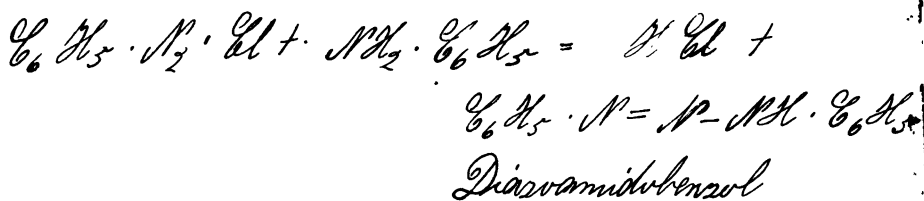 C₆H₅·N₂·Cl + NH₂·C₆H₅ = HCl +
C₆H₅·N=N–NH·C₆H₅
Diazoamidobenzol